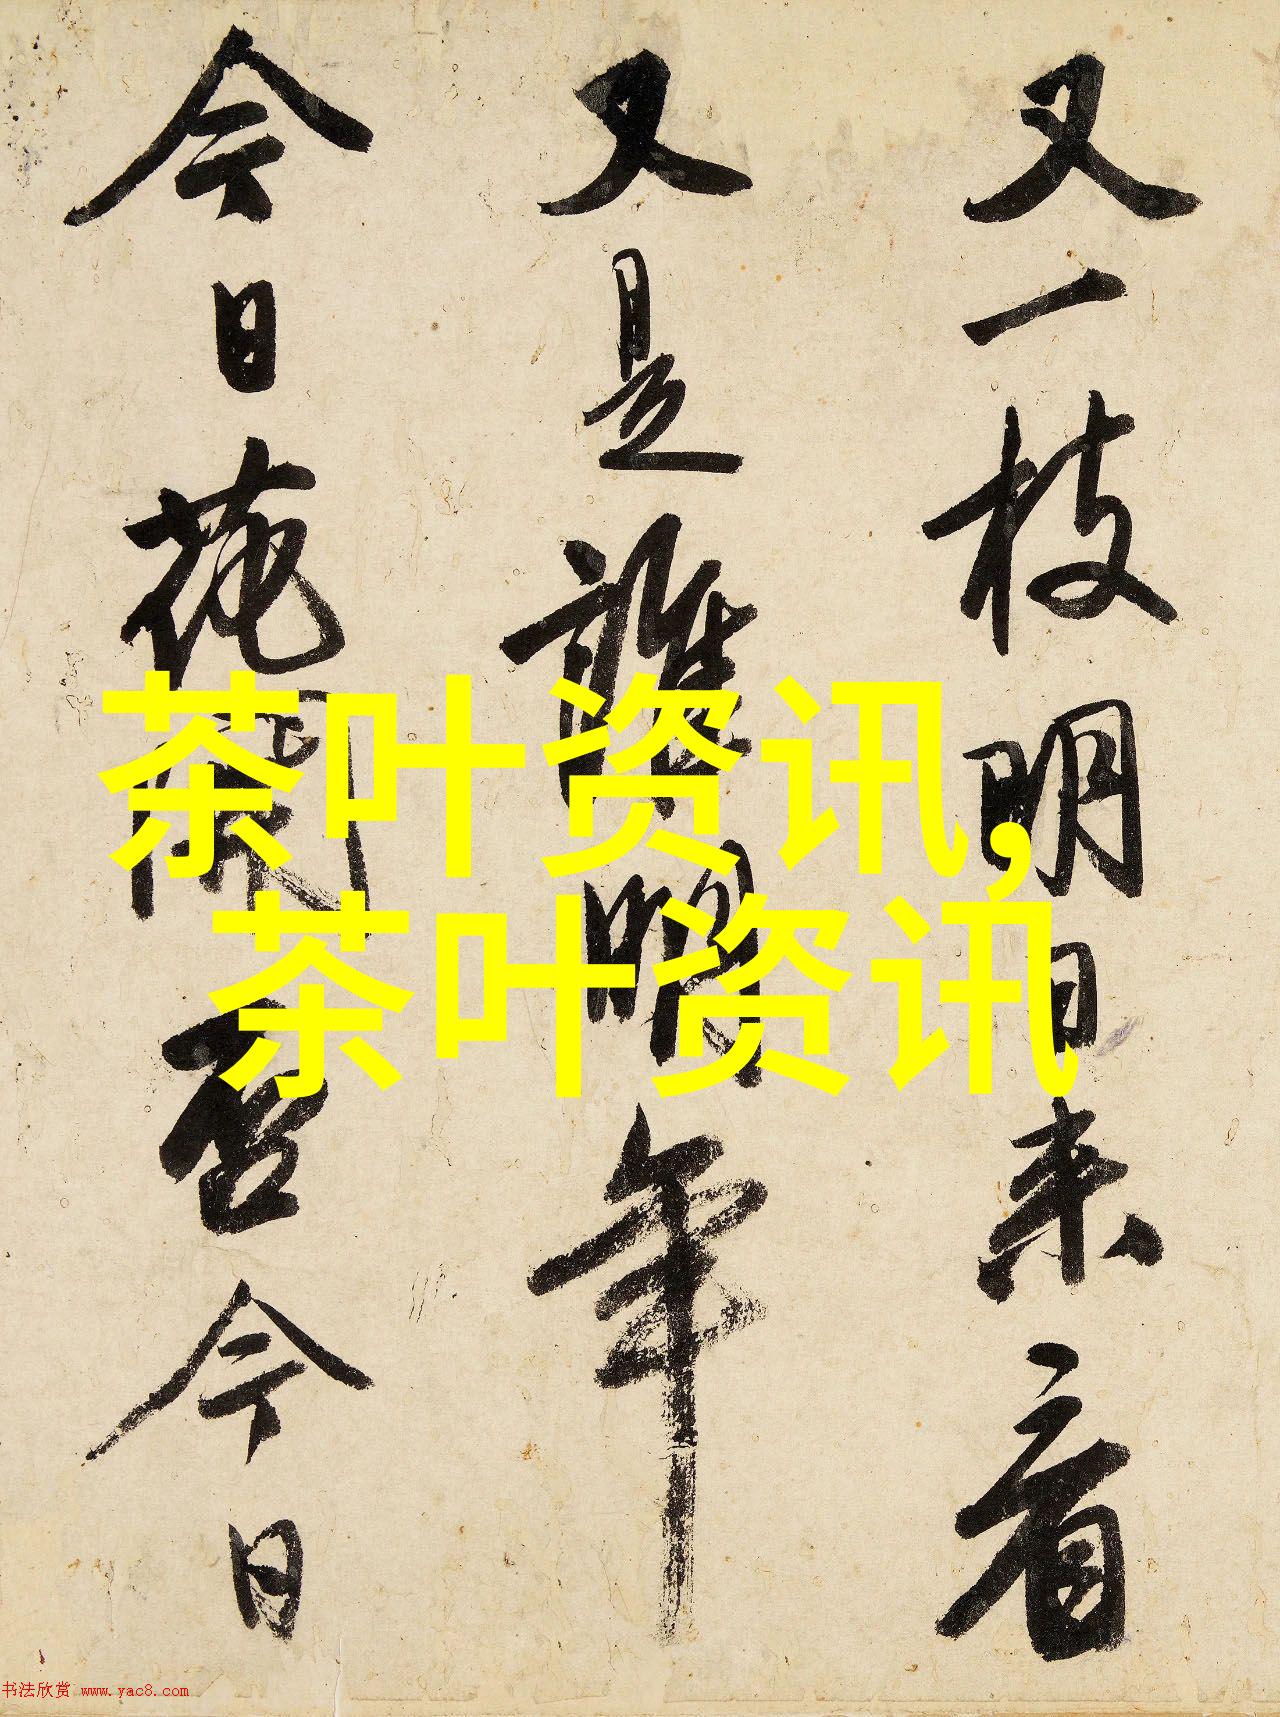 又一枝明日来看
又是誰明年
今日花開否今日
茶叶资讯,
茶叶资讯
书法欣赏 www.yac8.com